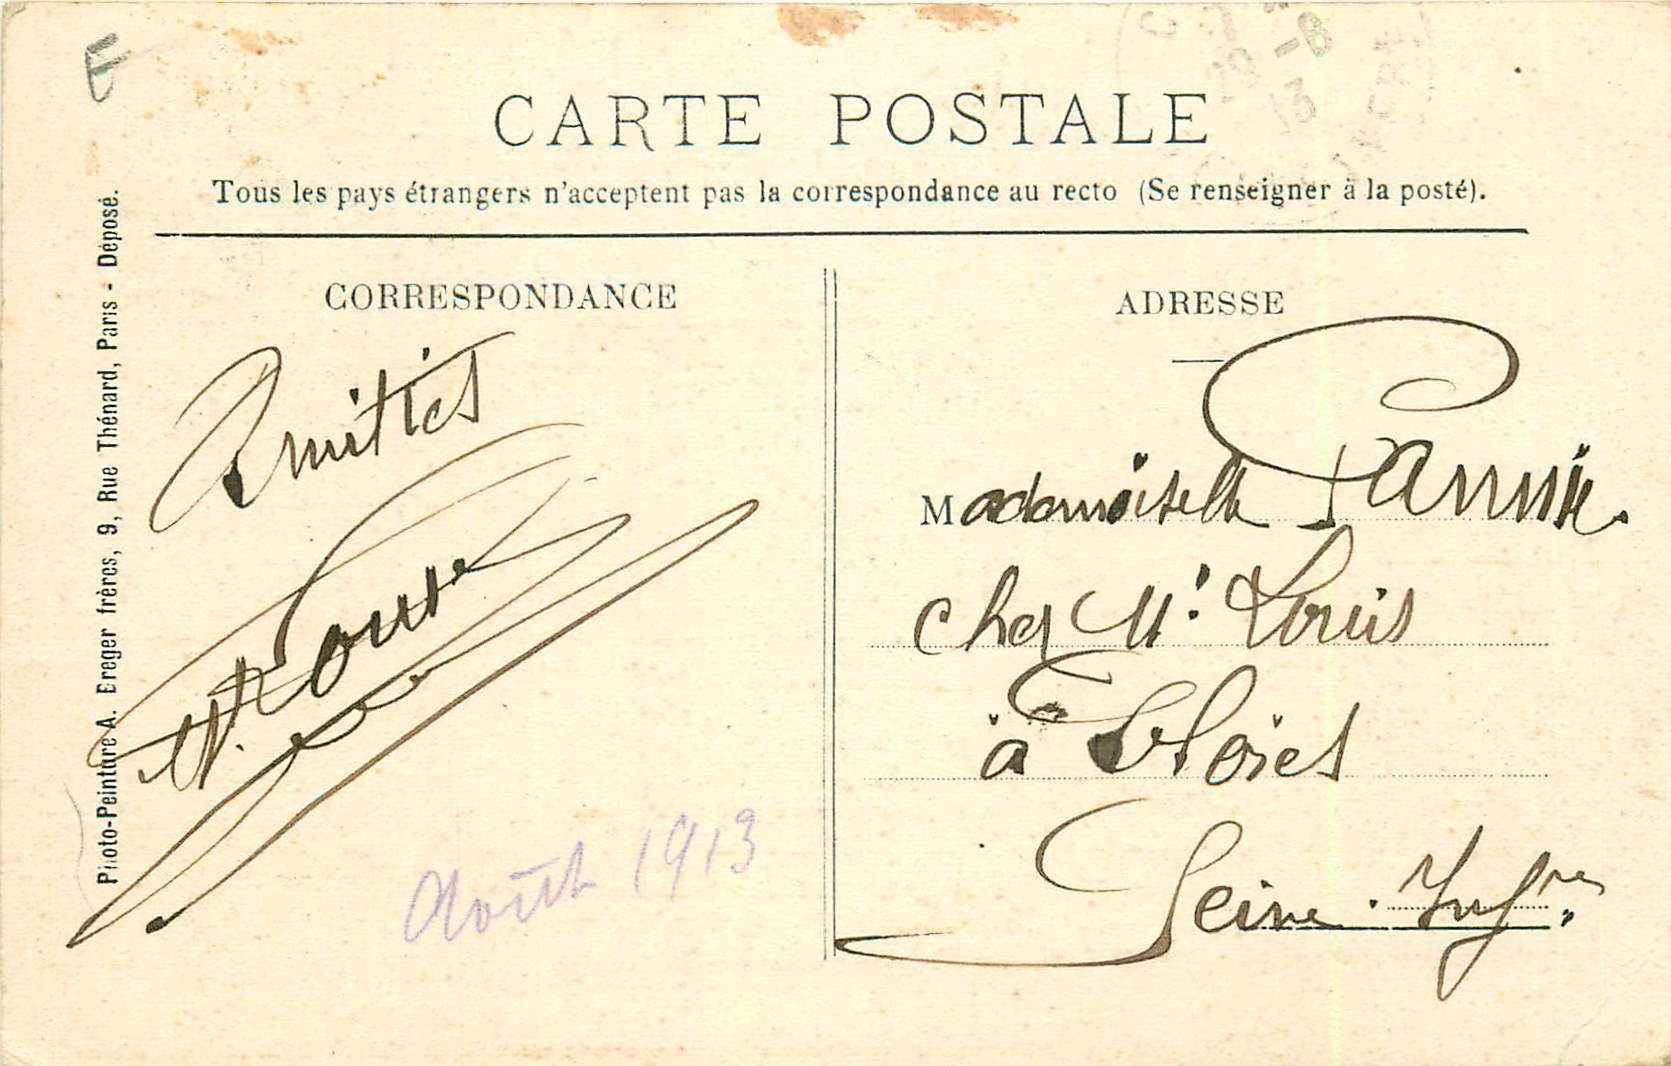 E
CARTE POSTALE
Tous les pays étrangers n'acceptent pas la correspondance au recto (Se renseigner à la posté).
Photo-Peinture A. Breger frères, 9, Rue Thénard, Paris - Déposé.
CORRESPONDANCE
Amitiés
Août 1913
ADRESSE
Mademoiselle Fannie.
chez Mr Louis
à
Seine. Infre